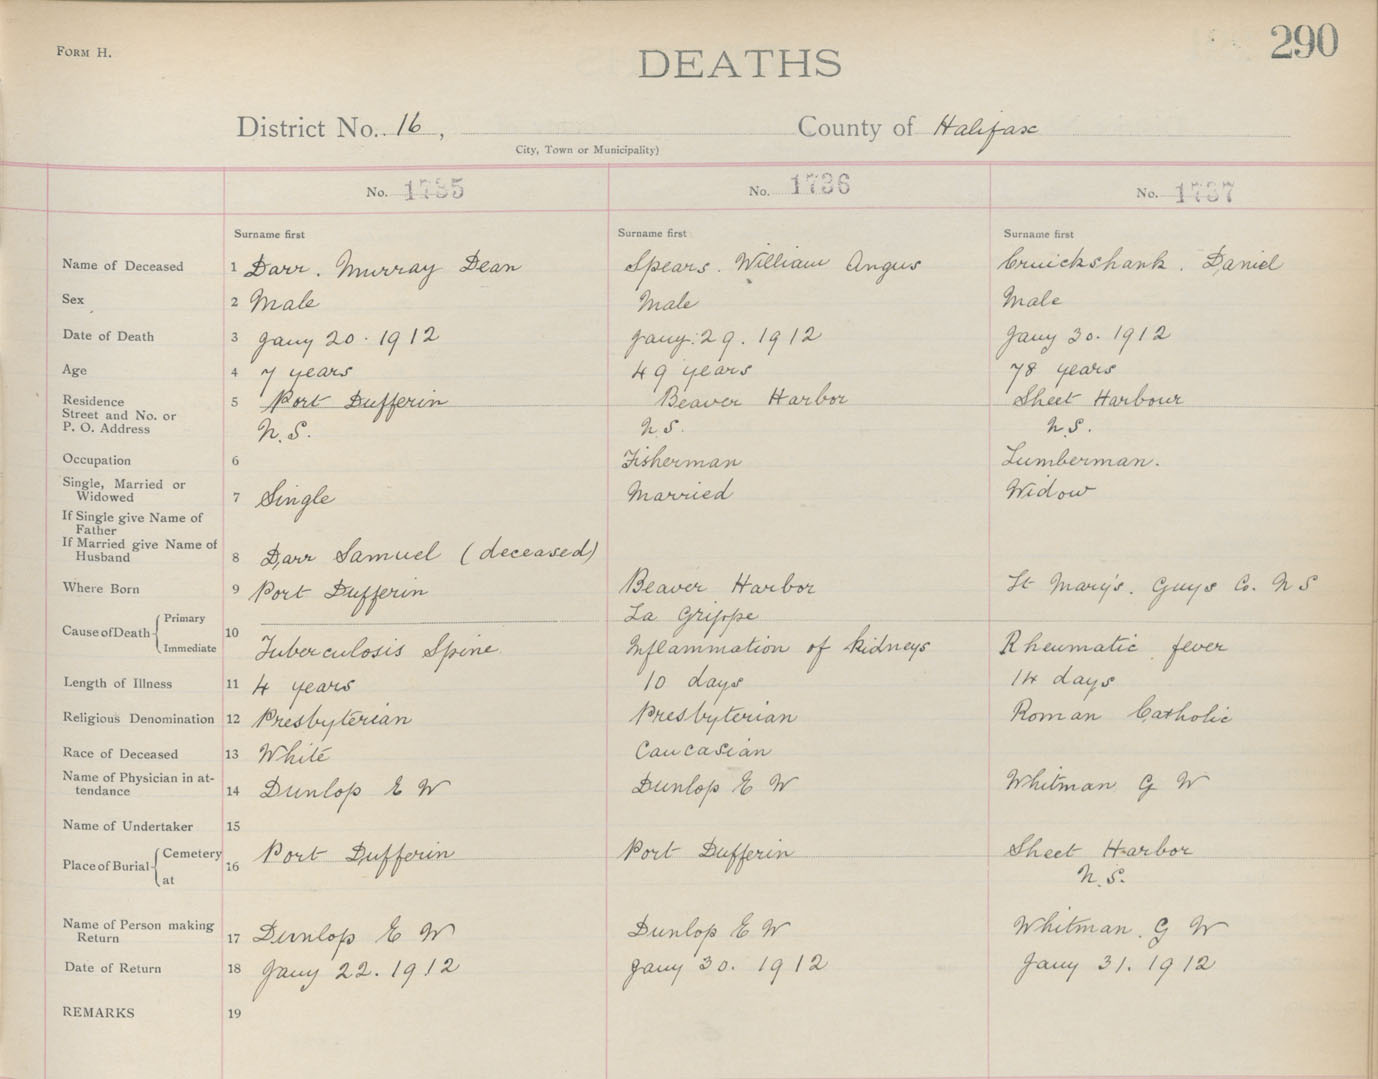 FORM H.
290
DEATHS
District No. 16, County of Halifax
City, Town or Municipality)
No. 1735 No. 1736 No. 1737
Surname first Surname first Surname first
Name of Deceased 1 Darr. Murray Dean Spears. William Angus Cruickshank. Daniel
Sex 2 Male Male Male
Date of Death 3 Jany 20. 1912 Jany. 29. 1912 Jany 30. 1912
Age 4 7 years 49 years 78 years
Residence 5 Port Dufferin Beaver Harbor Sheet Harbour
Street and No. or
P. O. Address N.S. N.S. N.S.
Occupation 6 Fisherman Lumberman.
Single, Married or
Widowed 7 Single Married Widow
If Single give Name of
Father
If Married give Name of
Husband 8 Darr Samuel (deceased)
Where Born 9 Port Dufferin Beaver Harbor St Mary's. Guys Co. N S
Cause of Death Primary La Grippe
10
Immediate Tuberculosis Spine Inflammation of kidneys Rheumatic fever
Length of Illness 11 4 years 10 days 14 days
Religious Denomination 12 Presbyterian Presbyterian Roman Catholic
Race of Deceased 13 White Caucasian
Name of Physician in at-
tendance 14 Dunlop E W Dunlop E W Whitman G W
Name of Undertaker 15
Place of Burial Cemetery 16 Port Dufferin Port Dufferin Sheet Harbor
at N.S.
Name of Person making
Return 17 Dunlop E W Dunlop E W Whitman. G W
Date of Return 18 Jany 22. 1912 Jany 30. 1912 Jany 31. 1912
REMARKS 19